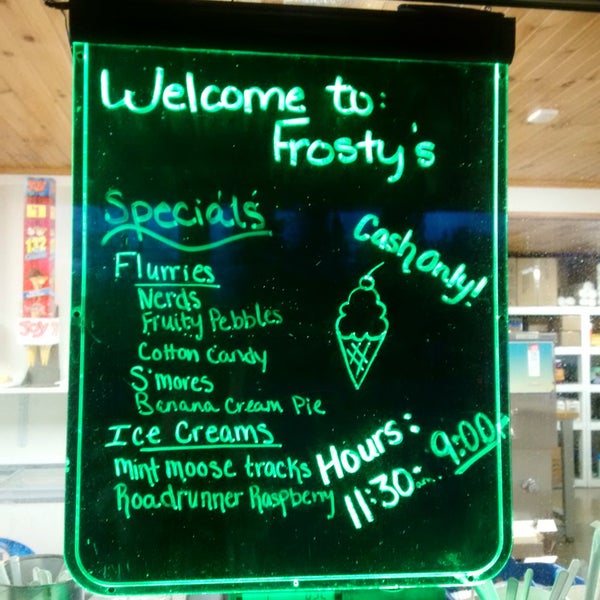 Welcome to:
Frosty's
Specials
Cash Only!
Flurries
Nerds
Fruity Pebbles
Cotton Candy
S'mores
Banana Cream Pie
Ice Creams
Mint moose tracks
Roadrunner Raspberry
Hours:
11:30am - 9:00
132